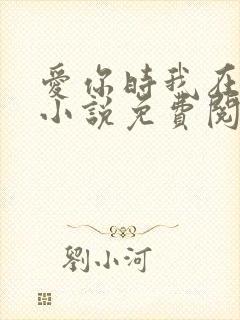 愛你時我在
小說免費閱
劉小河